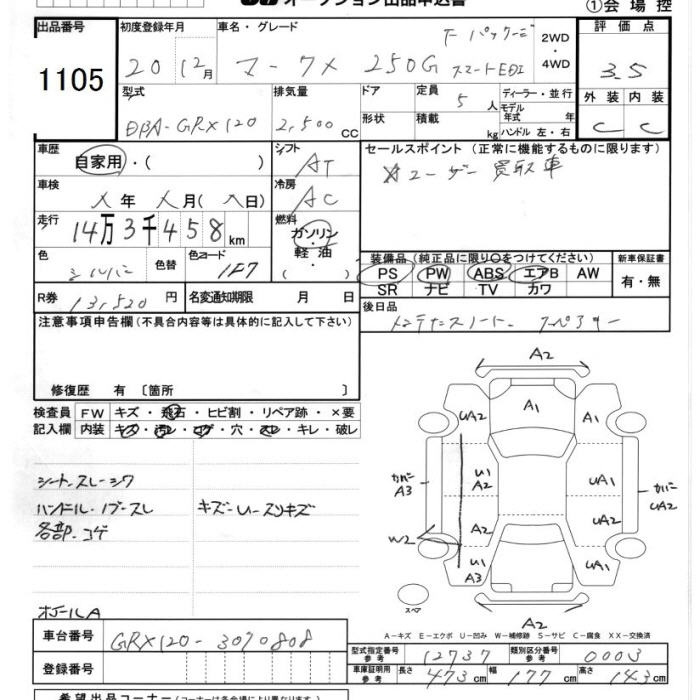 オークション出品申込書
①会場控
出品番号
1105
初度登録年月
20 12月
車名・グレード
マークX 250G
F パッケージ
スマートEDI
2WD
・
4WD
評価点
3.5
外装 内装
C C
型式
DBA-GRX120
排気量
2,500 cc
ドア
形状
定員
5 人
積載 kg
ディーラー・並行
モデル
年式 年
ハンドル 左・右
車歴
自家用・( )
シフト
AT
セールスポイント (正常に機能するものに限ります)
☆ユーザー買取車
車検
年 月( 日)
冷房
AC
走行
14万3千458km
燃料
ガソリン
・
軽油
・
( )
色
シルバー
色替
色コード
1F7
装備品(純正品に限り○をつけてください)
PS PW ABS エアB AW
SR ナビ TV カワ
新車保証書
有・無
R券 13,520円
名変通知期限 月 日
後日品
メンテナンスノート、スペアキー
注意事項申告欄(不具合内容等は具体的に記入して下さい)
修復歴 有〔箇所 〕
検査員
記入欄
FW キズ・飛石・ヒビ割・リペア跡・×要
内装 キズ・汚レ・コゲ・穴・スレ・キレ・破レ
シートスレ-シワ
ハンドル・ノブ-スレ
各部-コゲ
キズ-U-スリキズ
ホイールA
A2
UA2
A1
A1
カバー
A3
U1
A2
UA1
カバー
UA2
A2
UA2
W2
U1
A3
A1
スペア
A2
A-キズ E-エクボ U-凹み W-補修跡 S-サビ C-腐食 XX-交換済
車台番号
GRX120-3070808
登録番号
型式指定番号
参考
12737
類別区分番号
参考
0003
車庫証明用
参考
長さ 473cm
幅 177cm
高さ 143cm
希望出品コーナー(コーナーは各会場により異なります)